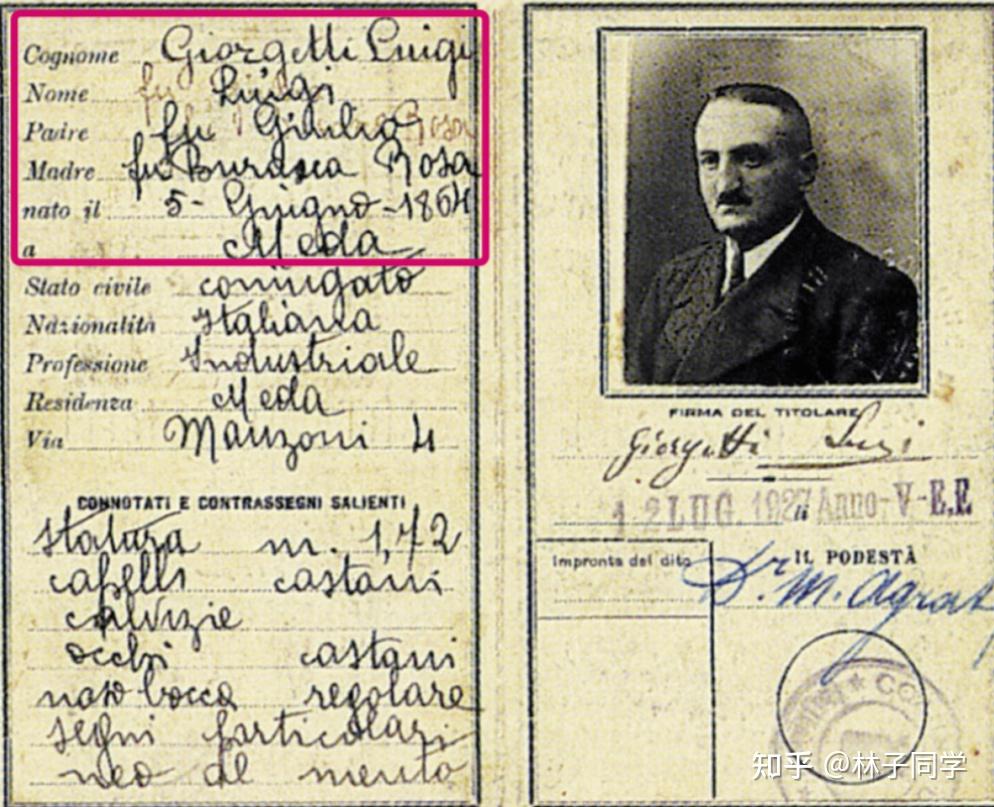 Cognome Giorgetti Luigi
Nome fu Luigi
Padre fu Giulio Rosa
Madre fu Burasca Rosa
nato il 5 - Giugno - 1864
a Meda
Stato civile coniugato
Nazionalità Italiana
Professione Industriale
Residenza Meda
Via Manzoni 4
CONNOTATI E CONTRASSEGNI SALIENTI
statura m. 1,72
capelli castani
calvizie
occhi castani
naso bocca regolare
segni particolari
neo al mento
FIRMA DEL TITOLARE
Giorgetti Luigi
12 LUG. 1927 Anno - V - E.F.
Impronta del dito
IL PODESTÀ
Dr. M. Agrat
CO
知乎 @林子同学